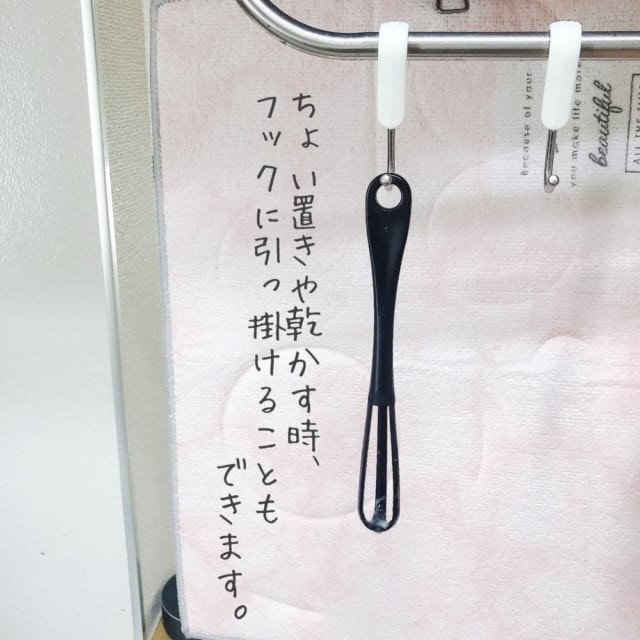 ちょい置きや乾かす時、
フックに引っ掛けることも
できます。
Because of your
you make life mor
beautiful